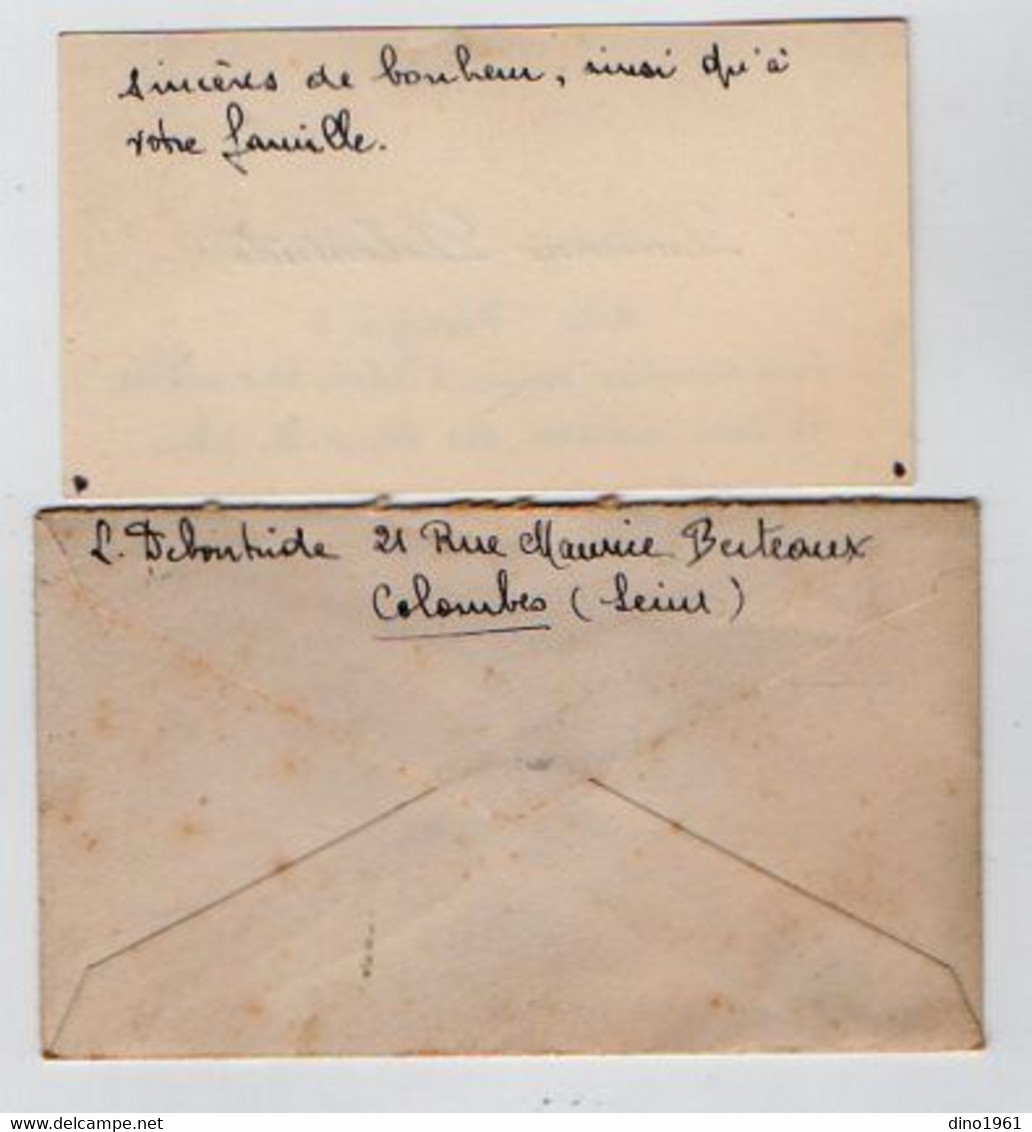 sincères de bonheur, ainsi qu'à
votre famille.
L. Debontride 21 Rue Maurice Berteaux
Colombes (Seine)
dino1961